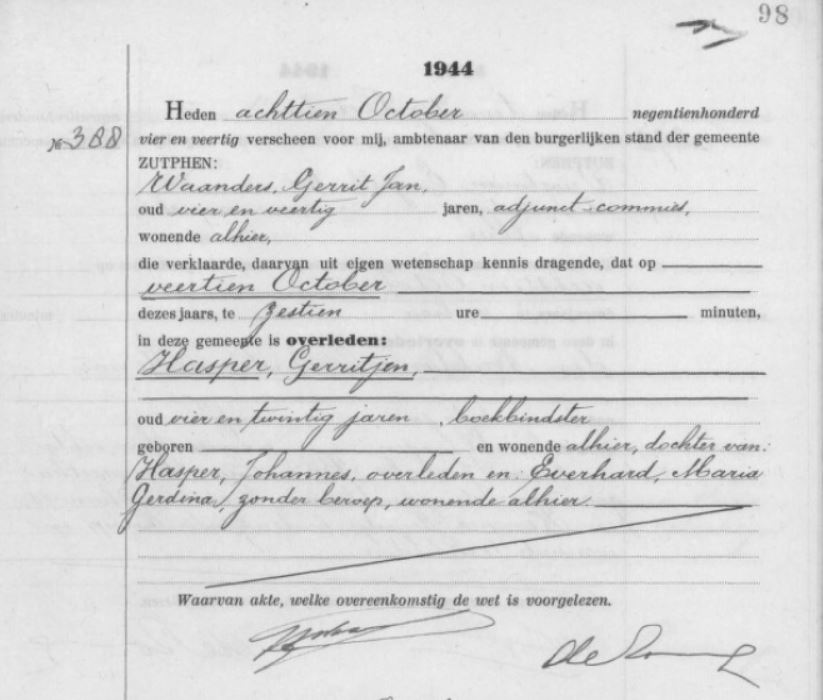 98
1944
Heden achttien October negentienhonderd
№ 388 vier en veertig verscheen voor mij, ambtenaar van den burgerlijken stand der gemeente
ZUTPHEN:
Waanders, Gerrit Jan,
oud vier en veertig jaren, adjunct-commies,
wonende alhier,
die verklaarde, daarvan uit eigen wetenschap kennis dragende, dat op
veertien October
dezes jaars, te zestien ure minuten,
in deze gemeente is overleden:
Hasper, Gerritjen,
oud vier en twintig jaren, boekbindster
geboren en wonende alhier, dochter van:
Hasper, Johannes, overleden en Everhard, Maria
Gerdina, zonder beroep, wonende alhier.
Waarvan akte, welke overeenkomstig de wet is voorgelezen.